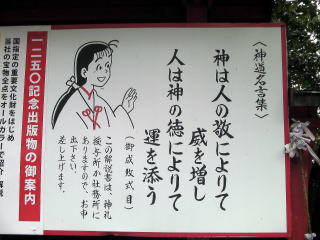 〈神道名言集〉
神は人の敬によりて
威を増し
人は神の徳によりて
運を添う
(御成敗式目)
○この解説書は、神札
授与所か社務所に
ありますので、お申
出下さい。
差し上げます。
一二五〇記念出版物の御案内
国指定の重要文化財をはじめ
当社の宝物全点をオールカラーで紹介